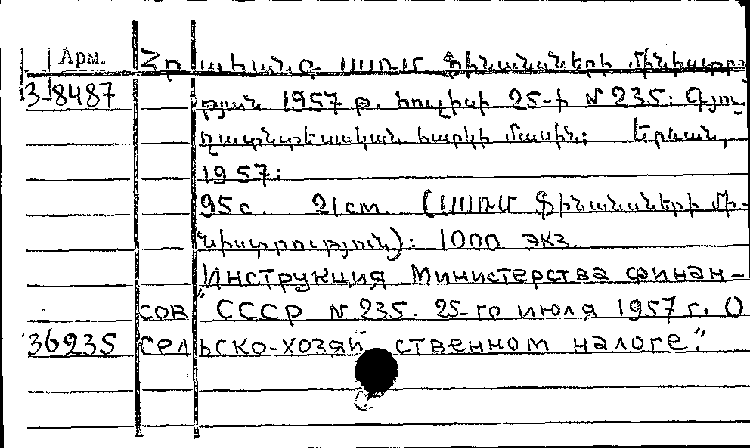 Арм. Հրահանգ ՍՍՌՄ Ֆինանսների մինիստրու
3-8487 թյան 1957 թ. հուլիսի 25-ի N 235: Գյու
ղատնտեսական հարկի մասին: Երևան,
1957:
95 с. 21 см. (ՍՍՌՄ Ֆինանսների մի-
նիստրություն): 1000 экз.
"Инструкция Министерства финан-
сов СССР N 235. 25-го июля 1957 г. О
36935 сельско-хозяйственном налоге."